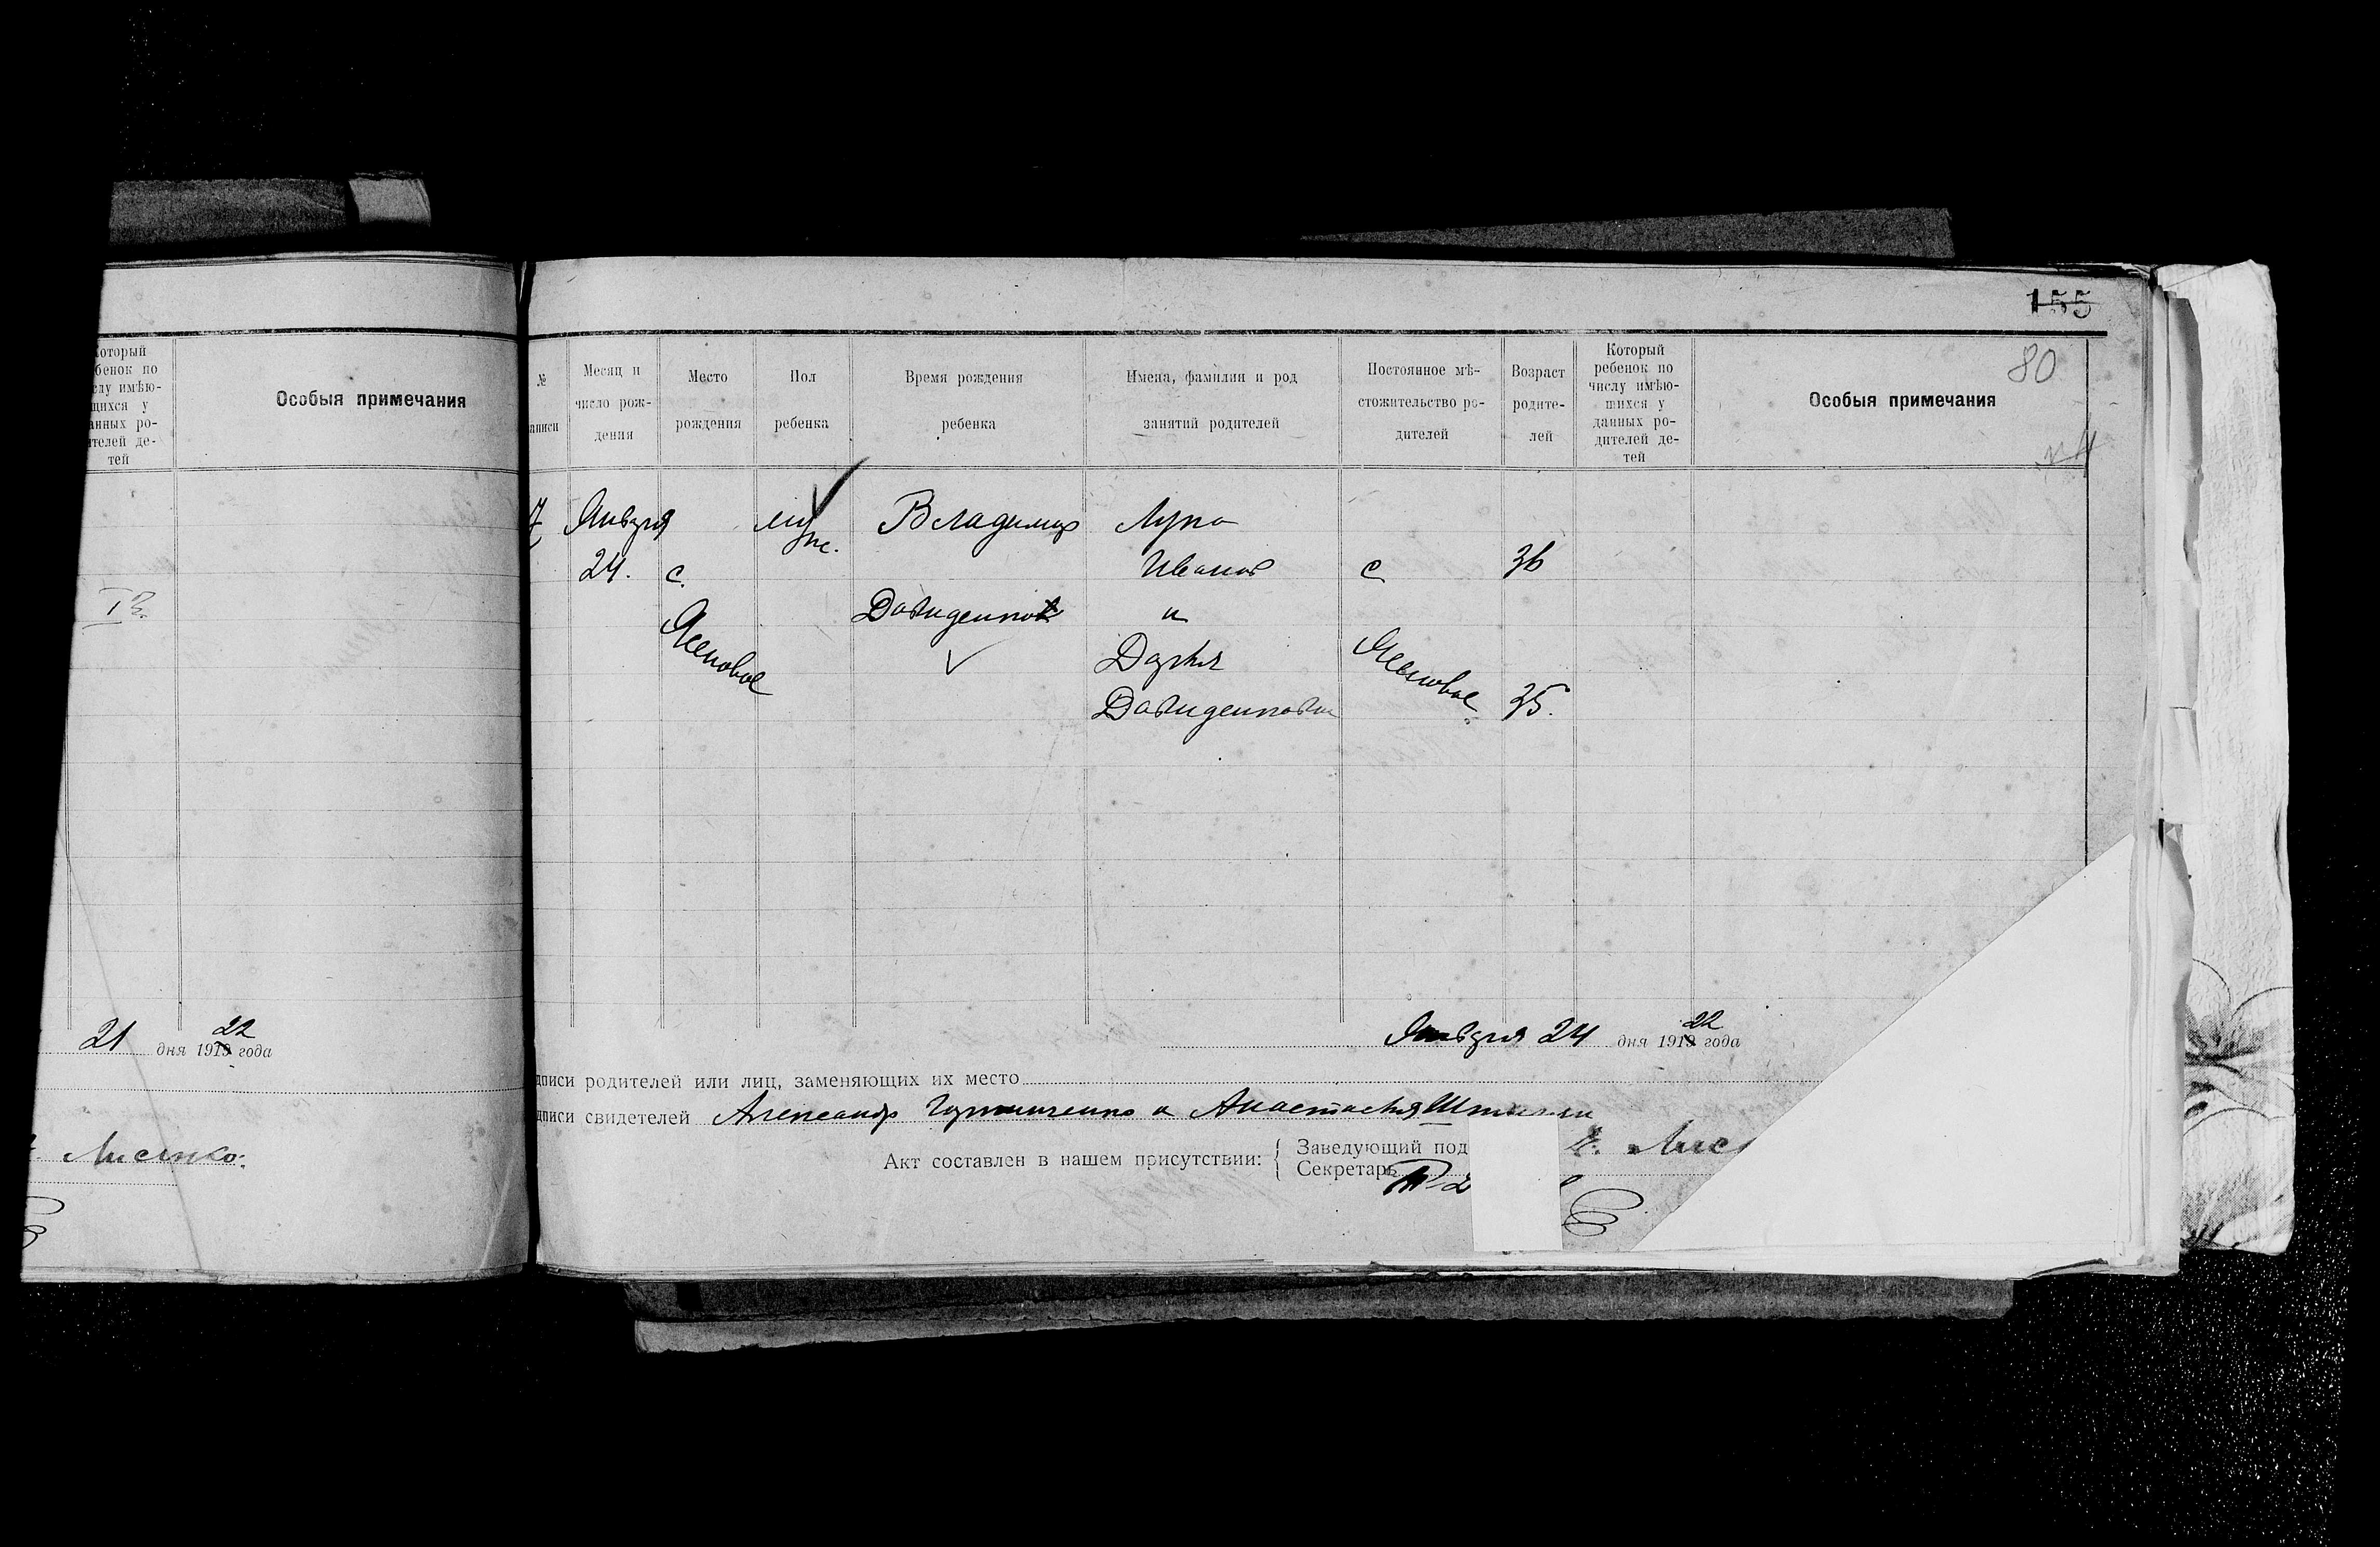 который
бенок по
слу имѣю-
щихся у
анных ро-
ителей де-
тей
Особыя примечания
21 дня 1919 22 года
Лисенко
155
80
№
аписи
Месяц и
число рож-
дения
Место
рождения
Пол
ребенка
Время рождения
ребенка
Имена, фамилии и род
занятий родителей
Постоянное мѣ-
стожительство ро-
дителей
Возраст
родите-
лей
Который
ребенок по
числу имѣю-
шихся у
данных ро-
дителей де-
тей
Особыя примечания
7 Января муж. Владимир Лука
24. с. Иванов с 36
Ясеновое Давиденков и Ясеновое
Дарья
Давиденкова 35.
Января 24 дня 1919 22 года
дписи родителей или лиц, заменяющих их место
дписи свидетелей Александр и Анастасия
Акт составлен в нашем присутствии: { Заведующий под
Секретарь
Лис